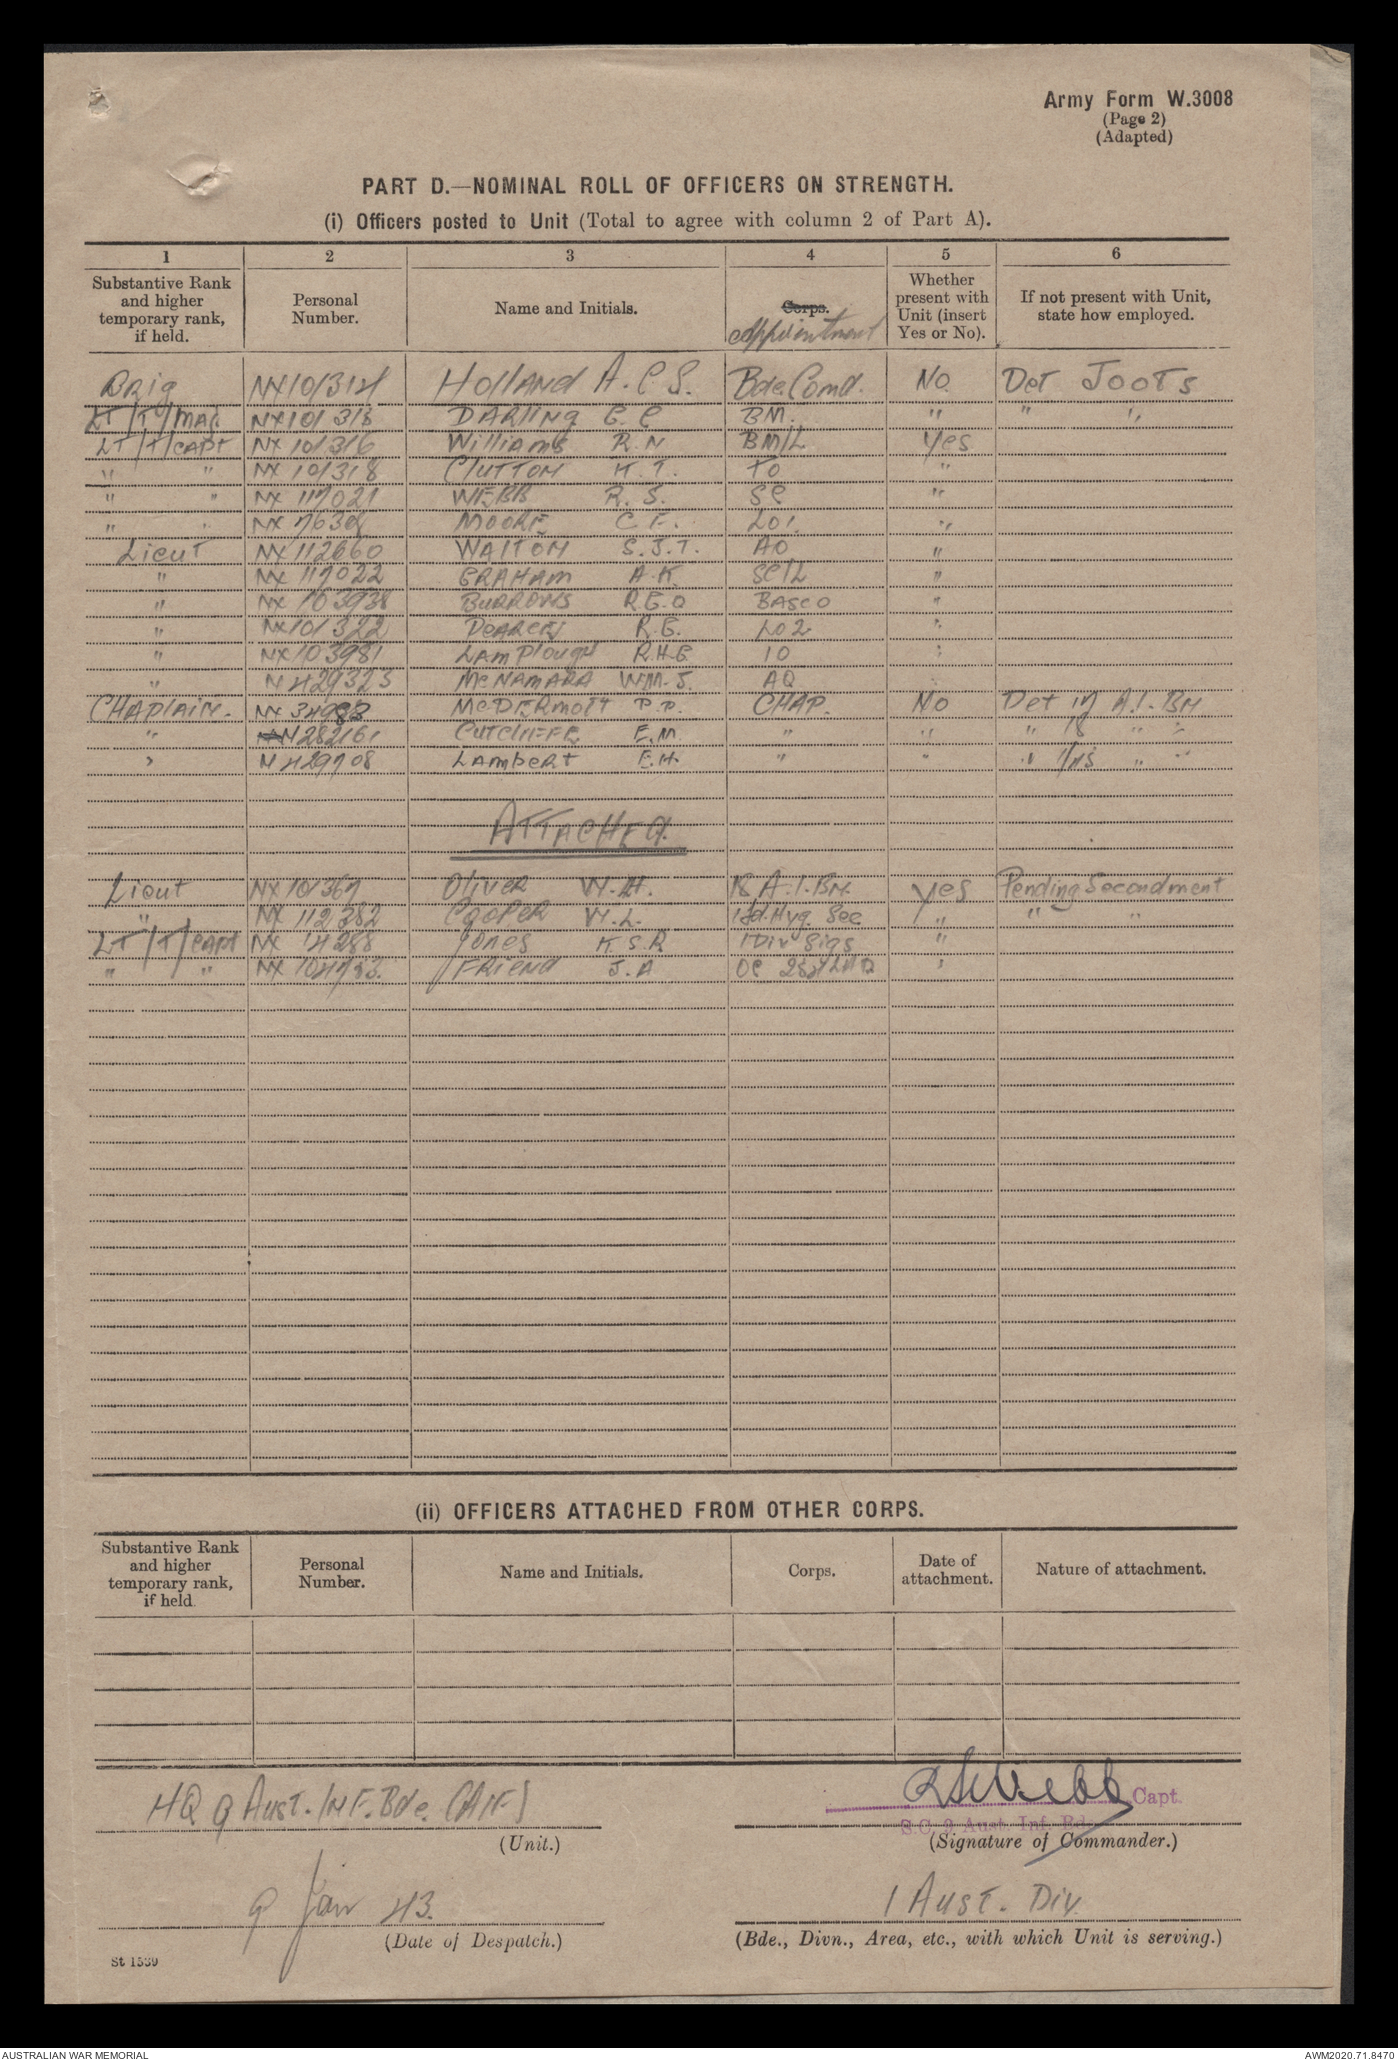 Army Form W.3008
(Page 2)
(Adapted)
PART D.—NOMINAL ROLL OF OFFICERS ON STRENGTH.
(i) Officers posted to Unit (Total to agree with column 2 of Part A).
1 2 3 4 5 6
Substantive Rank and higher temporary rank, if held. Personal Number. Name and Initials. Corps. Appointment Whether present with Unit (insert Yes or No). If not present with Unit, state how employed.
Brig NX101314 Holland A.C.S. Bde.Comd. No Det JOOTS
LT/T/MAJ. NX101313 DARLING BM. " " "
LT/T/CAPT NX101316 Williams R.N BM/L Yes
" " NX101318 CLUTTON H.T. TO "
" " NX117021 WEBB R.S. SC "
" " NX MOORE C.F. LO1. "
Lieut NX112660 WALTON S.J.T. AO "
" NX117022 GRAHAM A.K. SC/L "
" NX103938 BURROWS R.E.O BASCO "
" NX101322 R.E. LO2 "
" NX103981 LAMPlough R.H.G IO "
" N429323 McNAMARA WM.J. AQ "
CHAPlAIN. NX34983 McDERMOTT P.P. CHAP. No Det 17 A.I.BN
" N282161 CUTCLIFFE E.M. " " " 18 " "
" N429708 LAMBERT E.H. " " " " "
ATTACHED.
Lieut NX101367 OLIVER W.H. 18 A.I.BN. Yes Pending Secondment
" NX112382 COOPER W.L. Fd.Hyg Sec " " "
LT/T/CAPT NX14288 Jones K.S.R 1 Div Sigs "
" " NX104753. FRIEND J.A OC LAD "
(ii) OFFICERS ATTACHED FROM OTHER CORPS.
Substantive Rank and higher temporary rank, if held. Personal Number. Name and Initials. Corps. Date of attachment. Nature of attachment.
HQ 9 Aust. INF. Bde. (AIF)
(Unit.)
RSWebb Capt.
S.C. 9 Aust. Inf. Bde
(Signature of Commander.)
9 Jan 43.
(Date of Despatch.)
1 Aust. Div.
(Bde., Divn., Area, etc., with which Unit is serving.)
St 1539
AUSTRALIAN WAR MEMORIAL AWM2020.71.8470